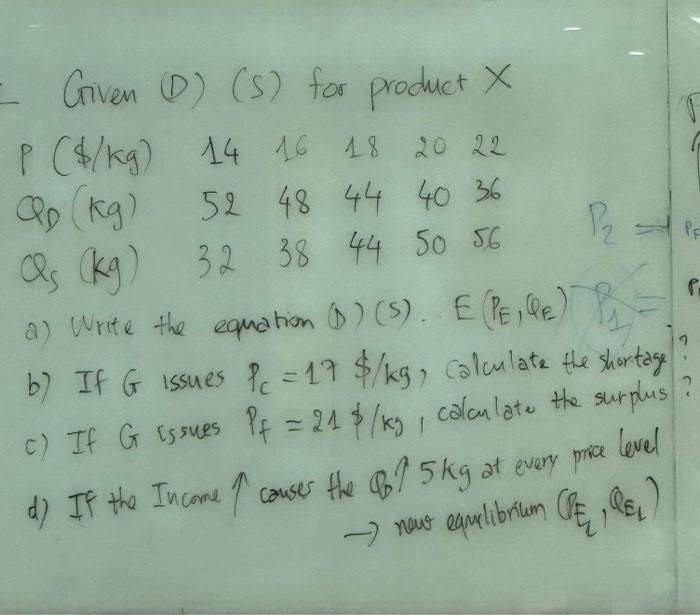 Given (D) (S) for product X
P ($/kg) 14 16 18 20 22
QD (kg) 52 48 44 40 36
Qs (kg) 32 38 44 50 56
P2 =
P1 =
a) Write the equation (D) (S). E (PE, QE)
b) If G issues Pc = 17 $/kg, calculate the shortage ?
c) If G issues Pf = 21 $/kg, calculate the surplus ?
d) If the Income ↑ causes the QD ↑ 5kg at every price level
→ new equilibrium (PE2, QE2)